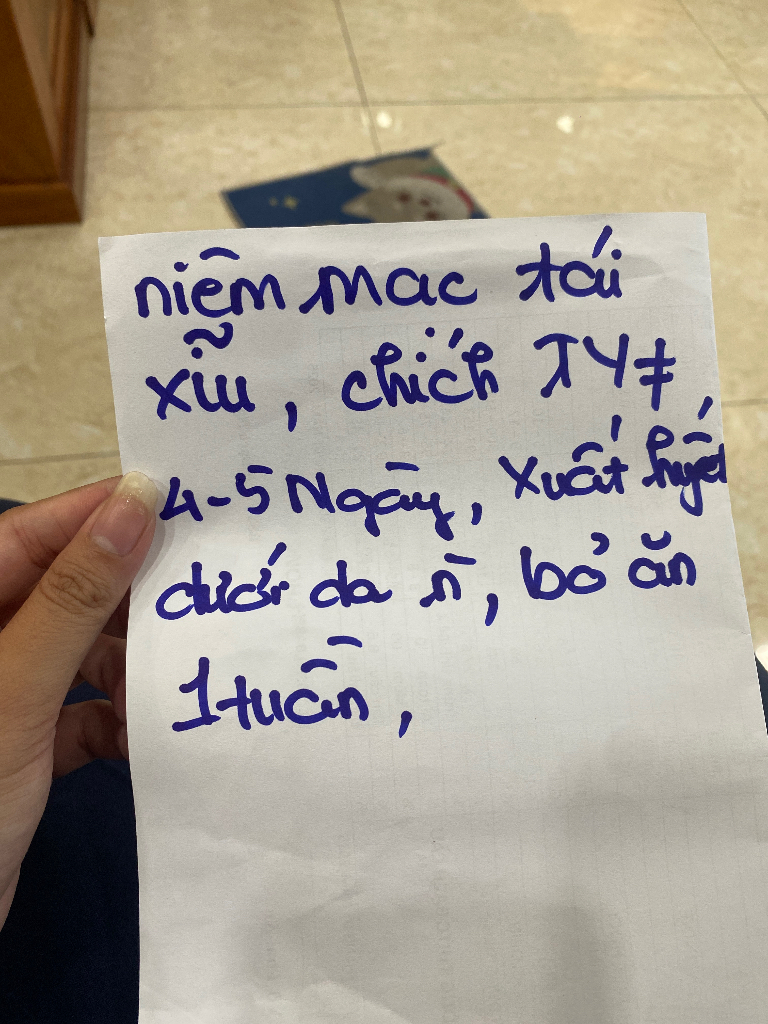 niêm mac tái
xĩu, chích TY ≠
4-5 Ngày, xuất huyết
dưới da n̄, bỏ ăn
1 tuần,